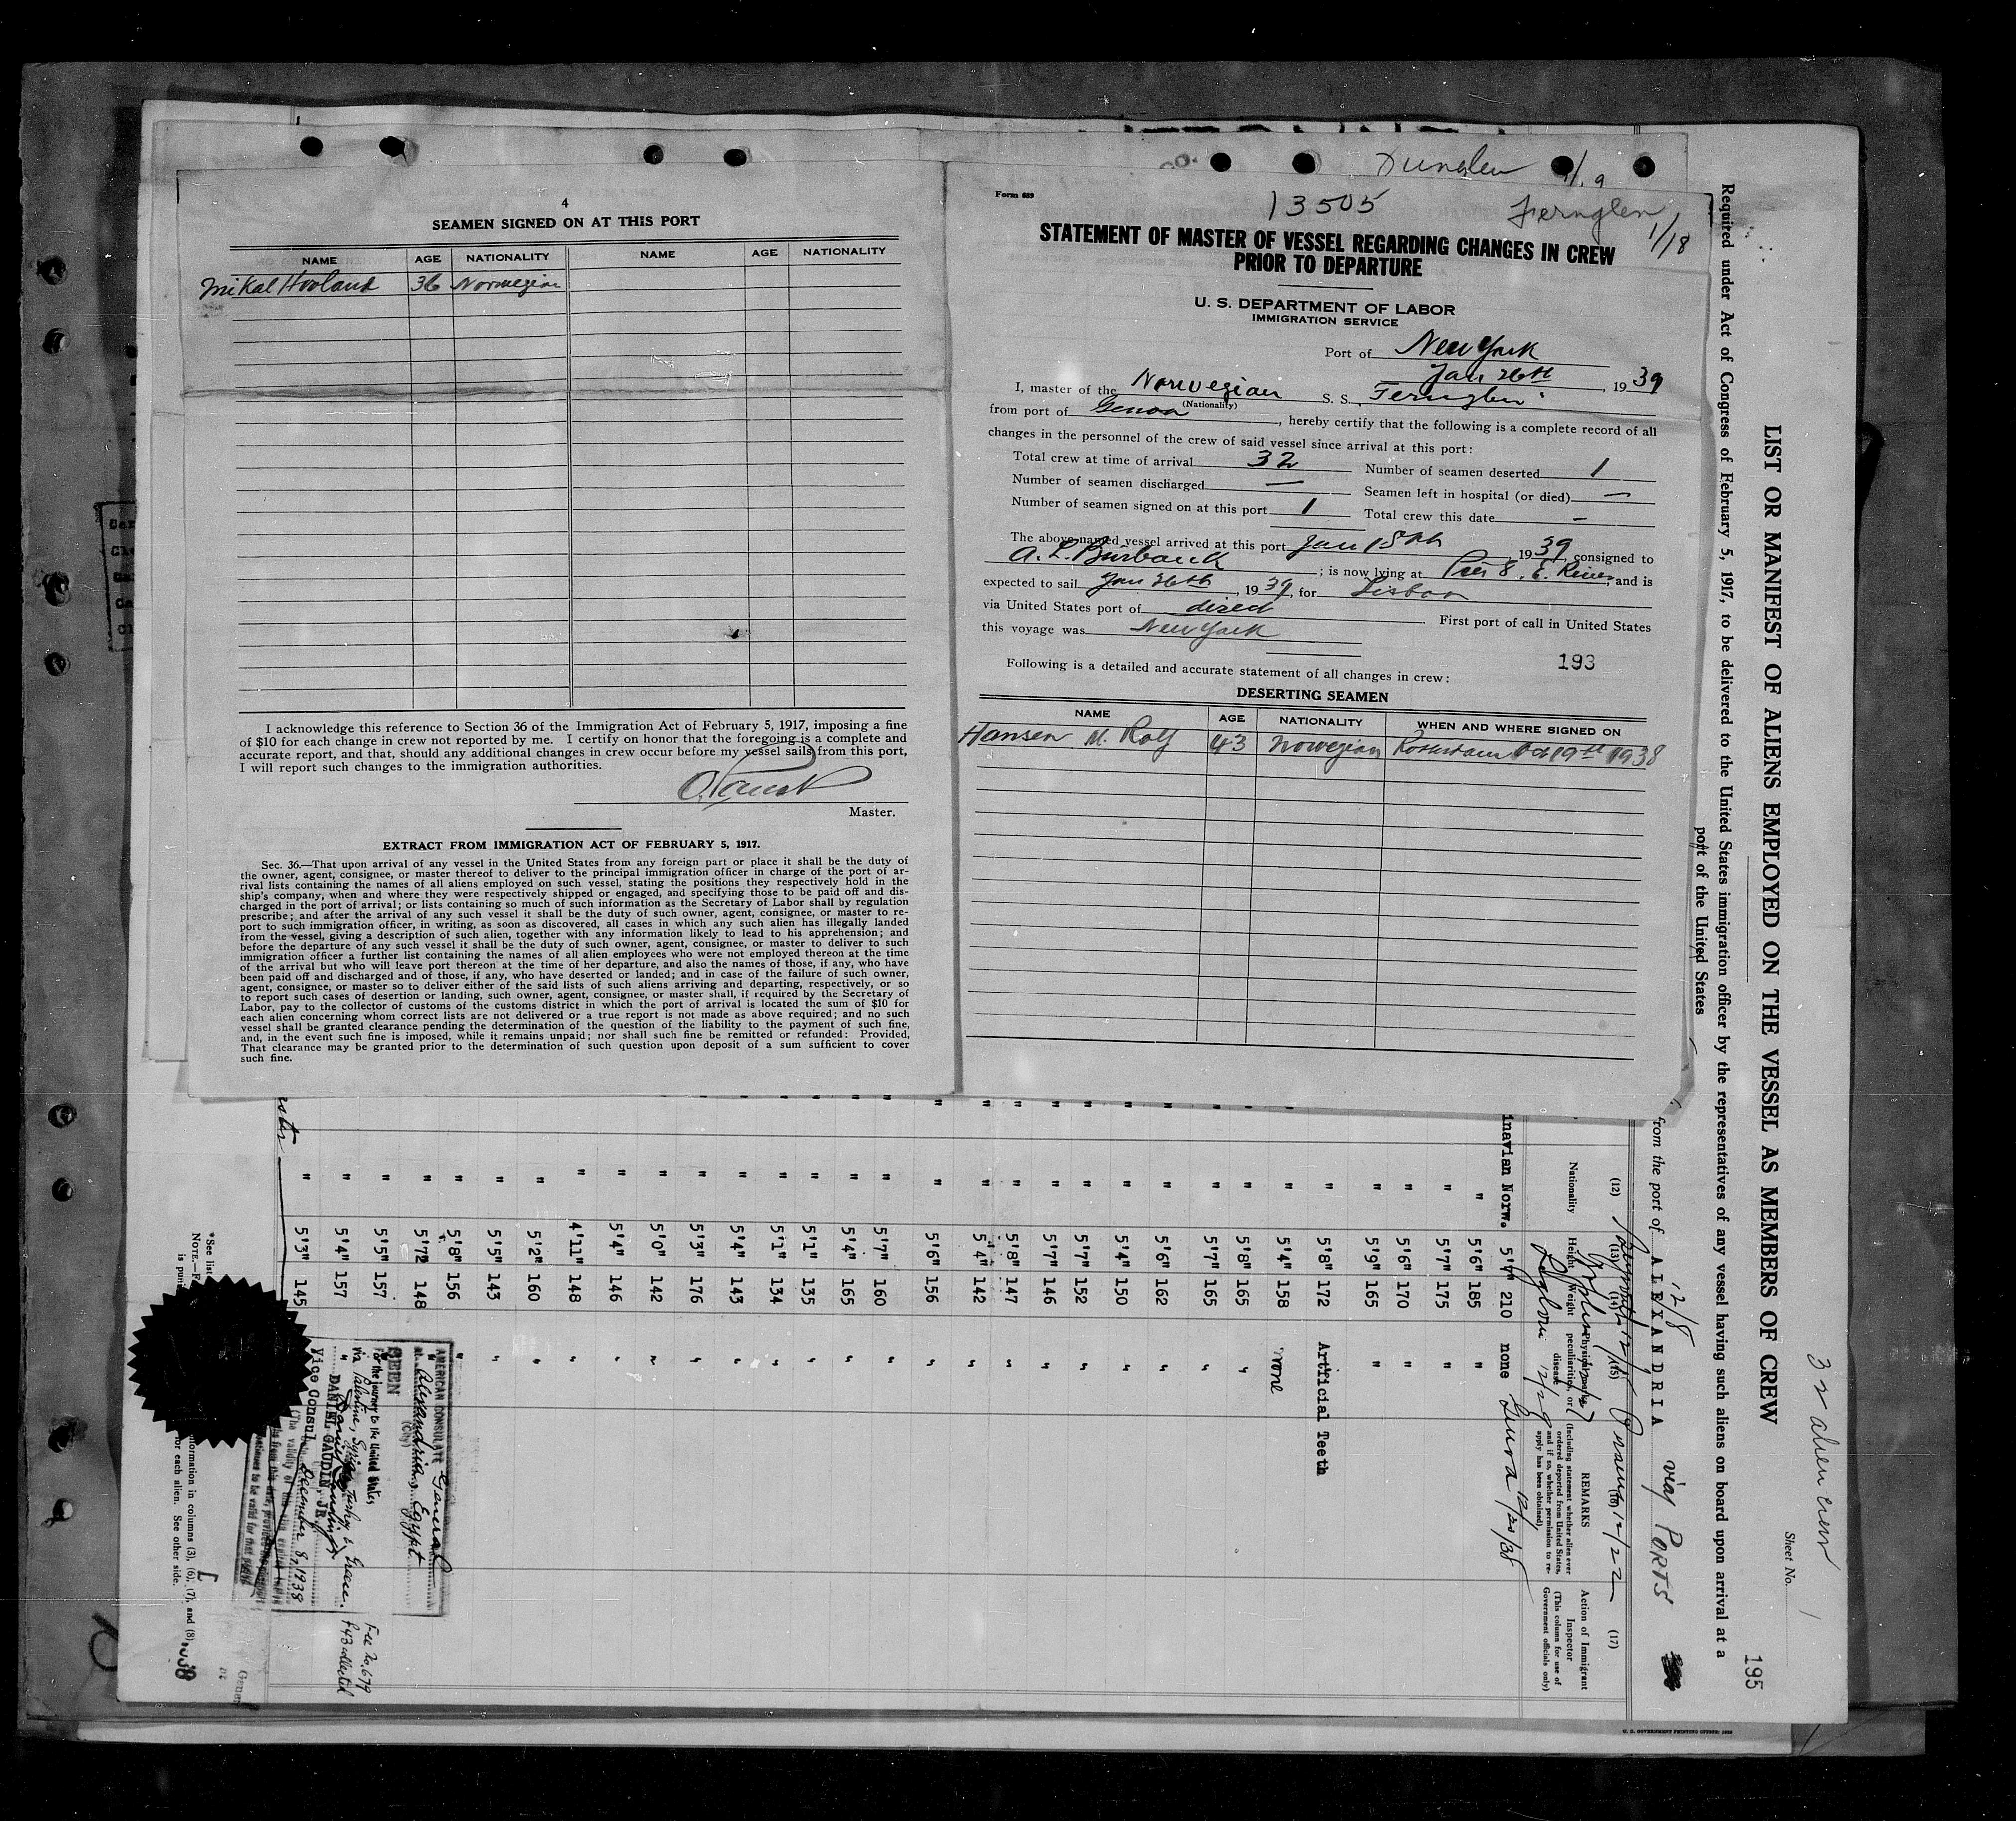 4
SEAMEN SIGNED ON AT THIS PORT
NAME AGE NATIONALITY NAME AGE NATIONALITY
Mikal Hovland 36 Norwegian
I acknowledge this reference to Section 36 of the Immigration Act of February 5, 1917, imposing a fine
of $10 for each change in crew not reported by me. I certify on honor that the foregoing is a complete and
accurate report, and that, should any additional changes in crew occur before my vessel sails from this port,
I will report such changes to the immigration authorities.
Master.
EXTRACT FROM IMMIGRATION ACT OF FEBRUARY 5, 1917.
Sec. 36.—That upon arrival of any vessel in the United States from any foreign part or place it shall be the duty of
the owner, agent, consignee, or master thereof to deliver to the principal immigration officer in charge of the port of ar-
rival lists containing the names of all aliens employed on such vessel, stating the positions they respectively hold in the
ship's company, when and where they were respectively shipped or engaged, and specifying those to be paid off and dis-
charged in the port of arrival; or lists containing so much of such information as the Secretary of Labor shall by regulation
prescribe; and after the arrival of any such vessel it shall be the duty of such owner, agent, consignee, or master to re-
port to such immigration officer, in writing, as soon as discovered, all cases in which any such alien has illegally landed
from the vessel, giving a description of such alien, together with any information likely to lead to his apprehension; and
before the departure of any such vessel it shall be the duty of such owner, agent, consignee, or master to deliver to such
immigration officer a further list containing the names of all alien employees who were not employed thereon at the time
of the arrival but who will leave port thereon at the time of her departure, and also the names of those, if any, who have
been paid off and discharged and of those, if any, who have deserted or landed; and in case of the failure of such owner,
agent, consignee, or master so to deliver either of the said lists of such aliens arriving and departing, respectively, or so
to report such cases of desertion or landing, such owner, agent, consignee, or master shall, if required by the Secretary of
Labor, pay to the collector of customs of the customs district in which the port of arrival is located the sum of $10 for
each alien concerning whom correct lists are not delivered or a true report is not made as above required; and no such
vessel shall be granted clearance pending the determination of the question of the liability to the payment of such fine,
and, in the event such fine is imposed, while it remains unpaid; nor shall such fine be remitted or refunded: Provided,
That clearance may be granted prior to the determination of such question upon deposit of a sum sufficient to cover
such fine.
Form 689
13505
Fernglen
1/18
STATEMENT OF MASTER OF VESSEL REGARDING CHANGES IN CREW
PRIOR TO DEPARTURE
U. S. DEPARTMENT OF LABOR
IMMIGRATION SERVICE
Port of New York
Jan 26th, 1939
I, master of the Norwegian S. S. Fernglen
(Nationality)
from port of Genoa, hereby certify that the following is a complete record of all
changes in the personnel of the crew of said vessel since arrival at this port:
Total crew at time of arrival 32 Number of seamen deserted 1
Number of seamen discharged — Seamen left in hospital (or died) —
Number of seamen signed on at this port 1 Total crew this date —
The above-named vessel arrived at this port Jan 18th, 1939, consigned to
A. L. Burbank; is now lying at Pier 8, E. River, and is
expected to sail Jan 26th, 1939, for Lisbon
via United States port of direct. First port of call in United States
this voyage was New York
193
Following is a detailed and accurate statement of all changes in crew:
DESERTING SEAMEN
NAME AGE NATIONALITY WHEN AND WHERE SIGNED ON
Hansen M. Rolf 43 Norwegian Rotterdam Oct 19th 1938
32 alien crew
Sheet No. 1
195
LIST OR MANIFEST OF ALIENS EMPLOYED ON THE VESSEL AS MEMBERS OF CREW
Required under Act of Congress of February 5, 1917, to be delivered to the United States immigration officer by the representatives of any vessel having such aliens on board upon arrival at a
port of the United States
from the port of ALEXANDRIA via PORTS
12/8
(12) (13) (14) (15) (16) (17)
Nationality Height Weight Physical marks, peculiarities, or disease
REMARKS
(Including statement whether alien ever
ordered deported from United States,
and if so, whether permission to re-
apply has been obtained)
Action of Immigrant
Inspector
(This column for use of
Government officials only)
Leghorn 12/29
Genoa 12/30/38
inavian Norw. 5'7" 210 none
" 5'6" 185 "
" 5'7" 175 "
" 5'6" 170 "
" 5'9" 165 "
" 5'8" 172 Artificial Teeth
" 5'4" 158 none
" 5'8" 165 "
" 5'7" 165 "
" 5'6" 162 "
" 5'4" 150 "
" 5'7" 152 "
" 5'7" 146 "
" 5'8" 147 "
" 5'4" 142 "
" 5'6" 156 "
" 5'7" 160 "
" 5'4" 165 "
" 5'1" 135 "
" 5'1" 134 "
" 5'4" 143 "
" 5'3" 176 "
" 5'0" 142 "
" 5'4" 146 "
" 4'11" 148 "
" 5'2" 160 "
" 5'5" 143 "
" 5'8" 156 "
" 5'7½ 148
" 5'5" 157
" 5'4" 157
" 5'3" 145
AMERICAN CONSULATE General
at Alexandria, Egypt
(City)
SEEN
For the journey to the United States
via Palestine, Syria, Turkey & Greece.
DANIEL GAUDIN, JR.
Vice Consul
December 8, 1938
Fee No. 679
*See list
NOTE.—F
is pun
information in columns (3), (6), (7), and (8)
for each alien. See other side.
U. S. GOVERNMENT PRINTING OFFICE